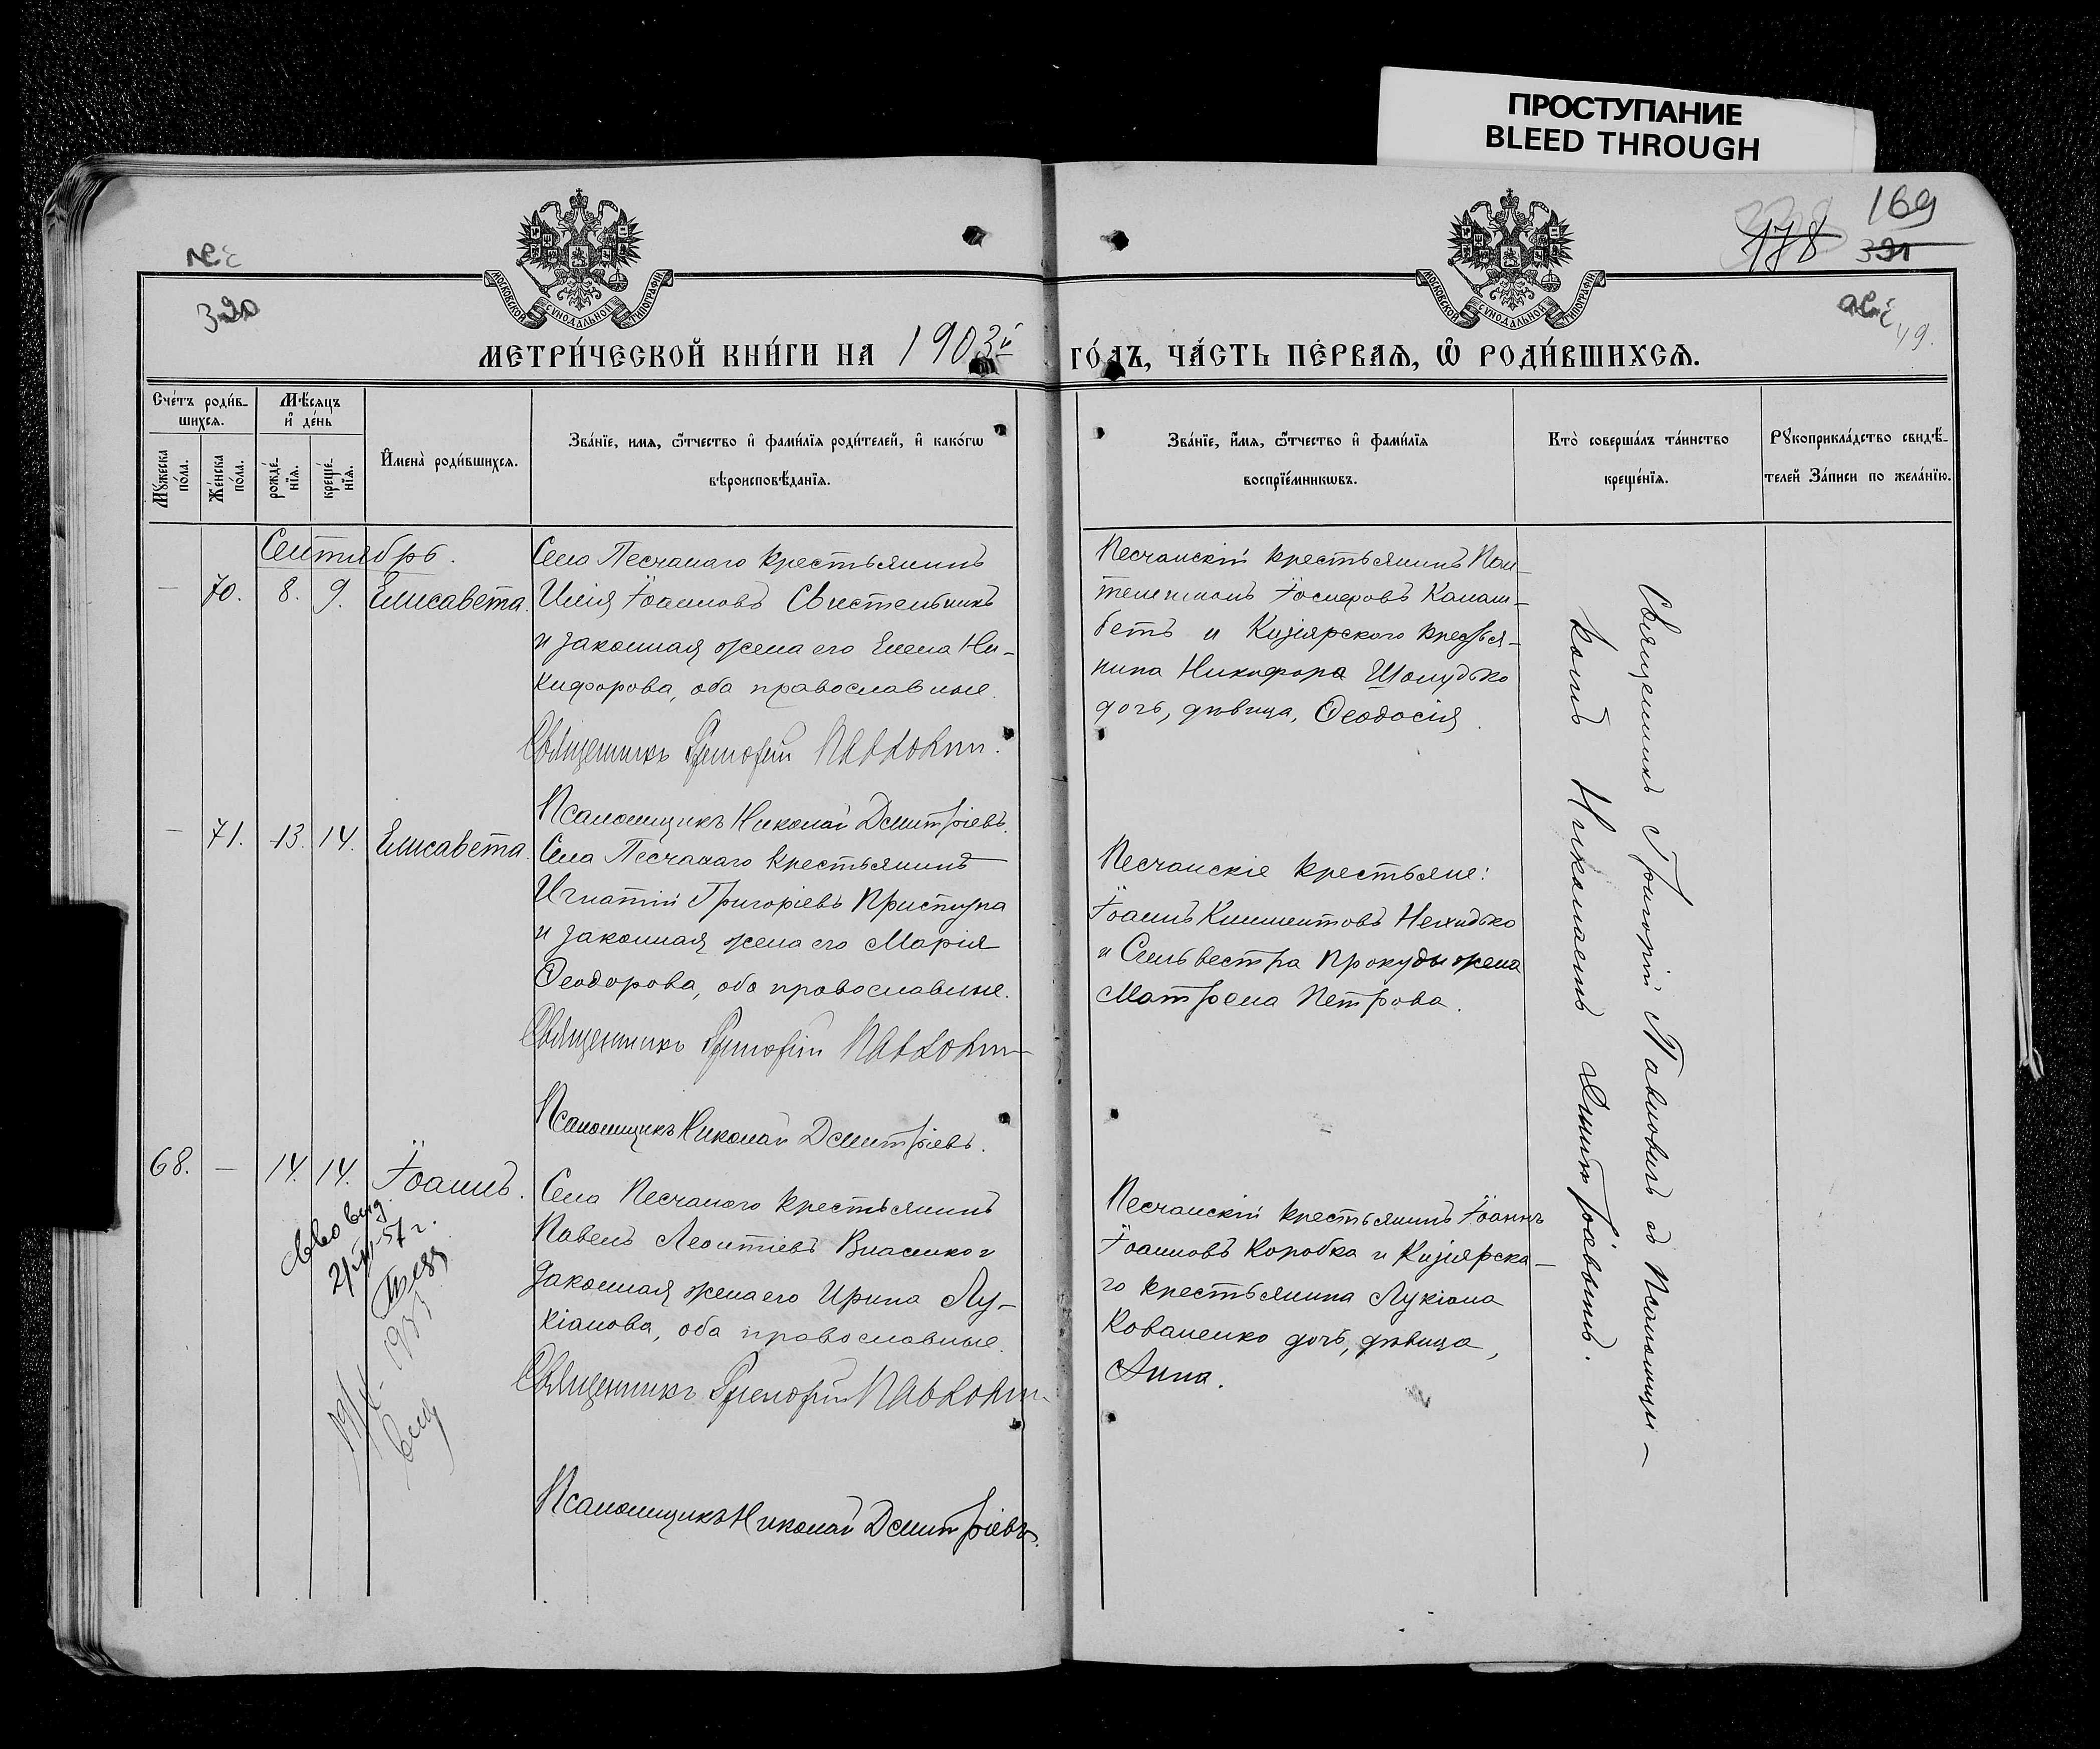 ПРОСТУПАНИЕ
BLEED THROUGH
169
178
321
320
49.
МОСКОВСКОЙ СѴНОДАЛЬНОЙ ТИПОГРАФІИ
МОСКОВСКОЙ СѴНОДАЛЬНОЙ ТИПОГРАФІИ
МЕТРИ́ЧЕСКОЙ КНИ́ГИ НА 1903й ГО́ДЪ, ЧА́СТЬ ПЕ́РВАѦ, Ѽ РОДИ́ВШИХСѦ.
Сче́тъ роди́в-
шихсѧ.
Мꙋ́жеска по́ла.
Же́нска по́ла.
Мѣ́сѧцъ
и҆ де́нь
рожде́-
нїѧ.
креще́-
нїѧ.
И҆мена̀ роди́вшихсѧ.
Зва́нїе, имѧ, ѻ҆́тчество и҆ фами́лїѧ роди́телей, и҆ како́гѡ
вѣроисповѣ́данїѧ.
Зва́нїе, и҆́мѧ, ѻ҆́тчество и҆ фами́лїѧ
воспрїе́мникѡвъ.
Кто̀ соверша́лъ та́инство
креще́нїѧ.
Рꙋкоприкла́дство свидѣ́-
телей За́писи по жела́нїю.
Сентябрь.
— 70. 8. 9. Елисавета.
Села Песчанаго крестьянинъ
Илія Іоанновъ Свистельникъ
и законная жена его Елена Ни-
кифорова, оба православные.
Священникъ Григорій Павловичъ.
Псаломщикъ Николай Дмитріевъ.
Песчанскій крестьянинъ Пан-
телеимонъ Іосифовъ Калаш-
бетъ и Кизіярского крестья-
нина Никифора Шолудько
дочь, дѣвица, Ѳеодосія.
— 71. 13. 14. Елисавета.
Села Песчанаго крестьянинъ
Игнатій Григоріевъ Приступа
и законная жена его Марія
Ѳеодорова, оба православные.
Священникъ Григорій Павловичъ
Псаломщикъ Николай Дмитріевъ.
Песчанскіе крестьяне:
Іоаннъ Климентовъ Нехидько
и Сильвестра Прокуды жена
Матрона Петрова.
68. — 14. 14. Іоаннъ.
Села Песчаного крестьянинъ
Павелъ Леонтіевъ Власенко и
законная жена его Ирина Лу-
кіанова, оба православные.
Священникъ Григорій Павловичъ
Псаломщикъ Николай Дмитріевъ.
Песчанскій крестьянинъ Іоаннъ
Іоанновъ Коробка и Кизіярска-
го крестьянина Лукіана
Коваленко дочь, дѣвица,
Анна.
Священникъ Григорій Павловичъ съ Псаломщи-
комъ Николаемъ Дмитріевымъ.